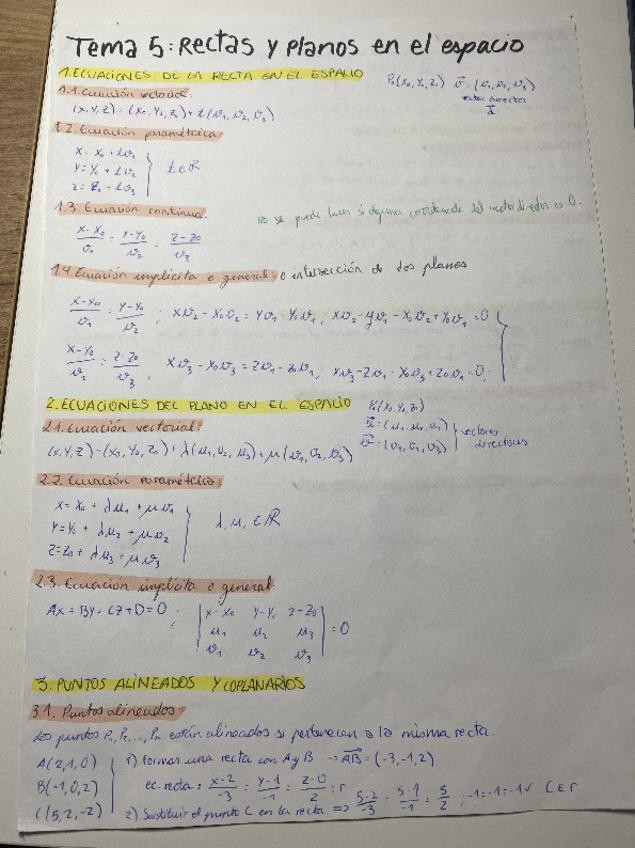 Tema 5: Rectas y planos en el espacio
1. ECUACIONES DE LA RECTA EN EL ESPACIO P₀(x₀, y₀, z₀) v⃗ = (v₁, v₂, v₃)
vector director
1.1. Ecuación vectorial:
(x, y, z) = (x₀, y₀, z₀) + t(v₁, v₂, v₃)
1.2. Ecuación paramétrica:
x = x₀ + tv₁
y = y₀ + tv₂ t ∈ ℝ
z = z₀ + tv₃
1.3. Ecuación continua. No se puede hacer si alguna coordenada del vector director es 0.
(x-x₀)/v₁ = (y-y₀)/v₂ = (z-z₀)/v₃
1.4 Ecuación implícita o general: o intersección de dos planos
(x-x₀)/v₁ = (y-y₀)/v₂ ; xv₂ - x₀v₂ = yv₁ - y₀v₁ ; xv₂ - yv₁ - x₀v₂ + y₀v₁ = 0
z-z₀/v₃ ; xv₃ - x₀v₃ = zv₁ - z₀v₁ ; xv₃ - zv₁ - x₀v₃ + z₀v₁ = 0
2. ECUACIONES DEL PLANO EN EL ESPACIO P₀(x₀, y₀, z₀)
2.1. Ecuación vectorial: u⃗ = (u₁, u₂, u₃)
v⃗ = (v₁, v₂, v₃) vectores directores
(x, y, z) = (x₀, y₀, z₀) + λ(u₁, u₂, u₃) + μ(v₁, v₂, v₃)
2.2. Ecuación paramétrica:
x = x₀ + λu₁ + μv₁
y = y₀ + λu₂ + μv₂ λ, μ, ∈ ℝ
z = z₀ + λu₃ + μv₃
2.3. Ecuación implícita o general:
Ax + By + Cz + D = 0 . | x-x₀ y-y₀ z-z₀ |
| u₁ u₂ u₃ | = 0
| v₁ v₂ v₃ |
3. PUNTOS ALINEADOS Y COPLANARIOS
3.1. Puntos alineados:
Los puntos P₁, P₂, ..., Pₙ están alineados si pertenecen a la misma recta.
A(2, 1, 0) 1) Formar una recta con A y B → AB⃗ = (-3, -1, 2)
B(-1, 0, 2) ec. recta: (x-2)/-3 = (y-1)/-1 = (z-0)/2 : r
C(5, 2, -2) 2) Sustituir el punto C en la recta ⇒ -1=-1=-1 ✓ C ∈ r